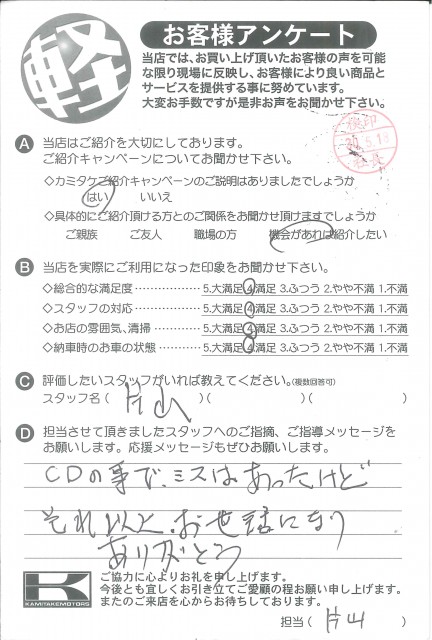 軽
お客様アンケート
当店では、お買い上げ頂いたお客様の声を可能
な限り現場に反映し、お客様により良い商品と
サービスを提供する事に努めています。
大変お手数ですが是非お声をお聞かせ下さい。
A 当店はご紹介を大切にしております。
ご紹介キャンペーンについてお聞かせ下さい。
5.18
◇カミタケご紹介キャンペーンのご説明はありましたでしょうか
はい いいえ
◇具体的にご紹介頂ける方とのご関係をお聞かせ頂けますでしょうか
ご親族 ご友人 職場の方 機会があれば紹介したい
B 当店を実際にご利用になった印象をお聞かせ下さい。
◇総合的な満足度 5.大満足 4.満足 3.ふつう 2.やや不満 1.不満
◇スタッフの対応 5.大満足 4.満足 3.ふつう 2.やや不満 1.不満
◇お店の雰囲気、清掃 5.大満足 4.満足 3.ふつう 2.やや不満 1.不満
◇納車時のお車の状態 5.大満足 4.満足 3.ふつう 2.やや不満 1.不満
C 評価したいスタッフがいれば教えてください。(複数回答可)
スタッフ名 ( 片山 )( )( )
D 担当させて頂きましたスタッフへのご指摘、ご指導メッセージを
お願いします。応援メッセージもぜひお願いします。
CDの事で、ミスはあったけど
それ以上、お世話になり
ありがとう
K
KAMITAKEMOTORS
ご協力に心よりお礼を申し上げます。
今後とも宜しくお引き立てご愛顧の程お願い申し上げます。
またのご来店を心からお待ちしております。
担当 ( 片山 )